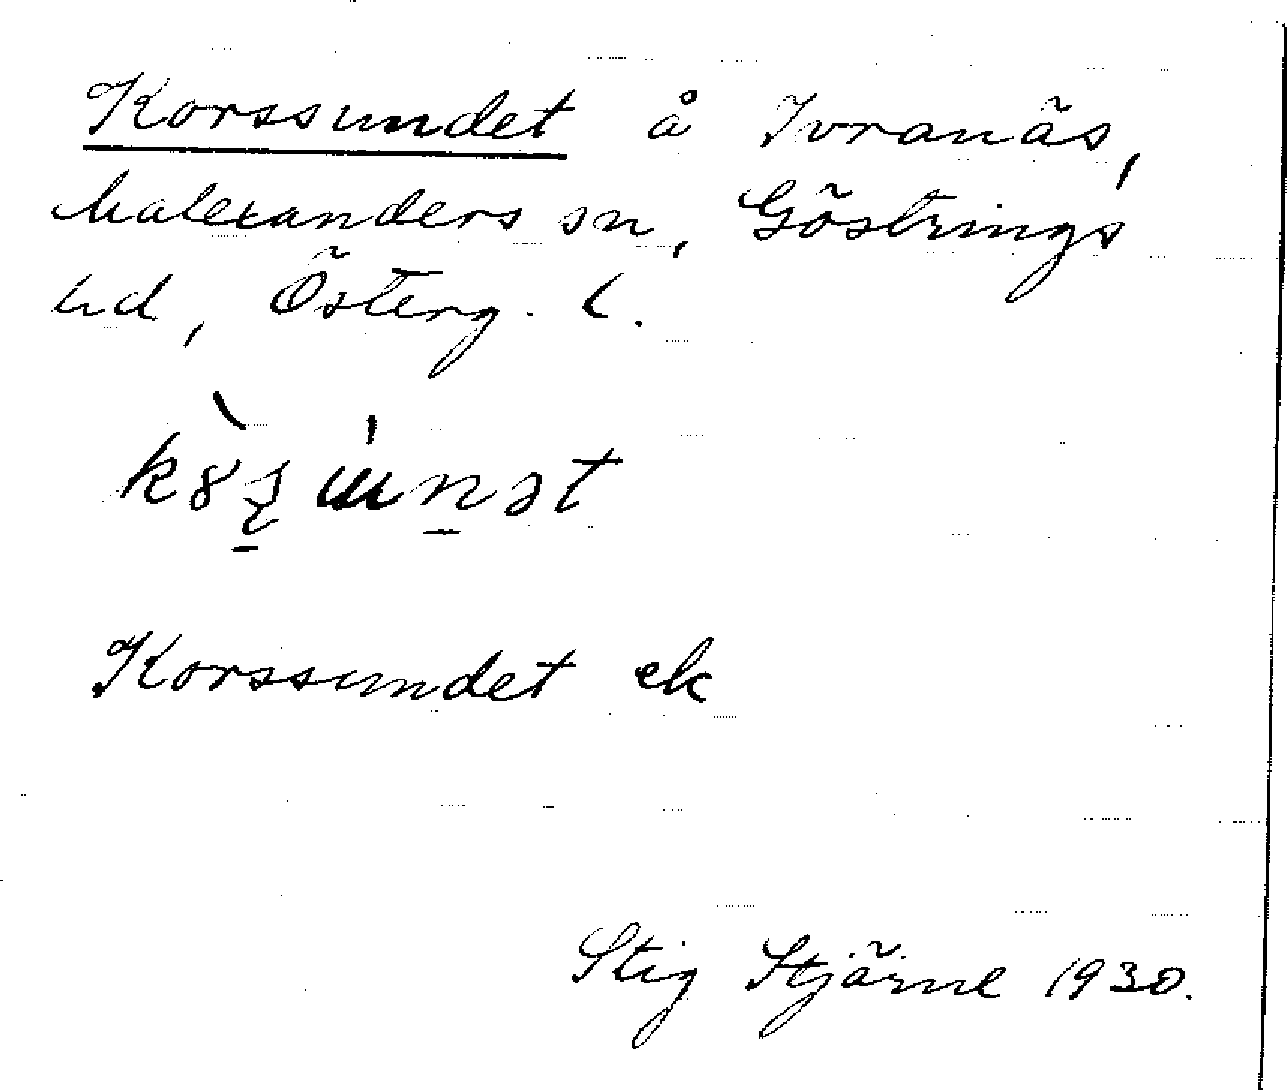 Korssundet å Ivranäs,
Malexanders sn, Göstrings
hd, Österg. l.
Korssundet ek
Stig Stjärne 1930.